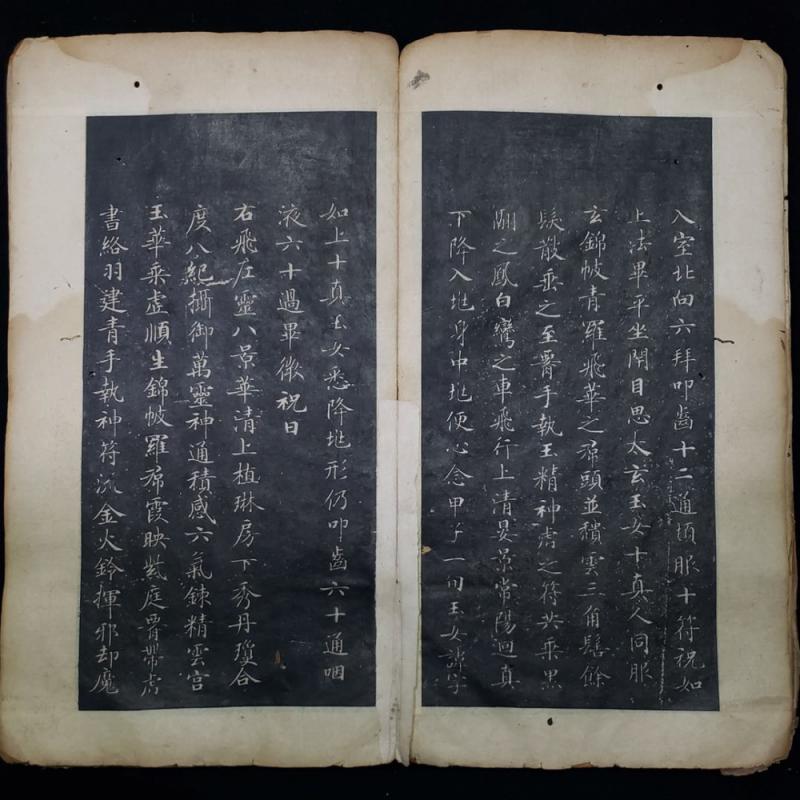 入室北向六拜叩齒十二通頓服十符祝如
上法畢平坐閉目思太玄玉女十真人同服
玄錦帔青羅飛華之帬頭並穨雲三角髻餘
髮散垂之至胷手執玉精神虎之符共乘黑
翮之鳳白鸞之車飛行上清晏景常陽迴真
下降入地身中地便心念甲子一旬玉女諱字
如上十真玉女悉降地形仍叩齒六十通咽
液六十過畢微祝曰
右飛左靈八景華清上植琳房下秀丹瓊合
度八紀攝御萬靈神通積感六氣鍊精雲宮
玉華乘虛順生錦帔羅帬霞映紫庭胷帶虎
書絡羽建青手執神符流金火鈴揮邪却魔